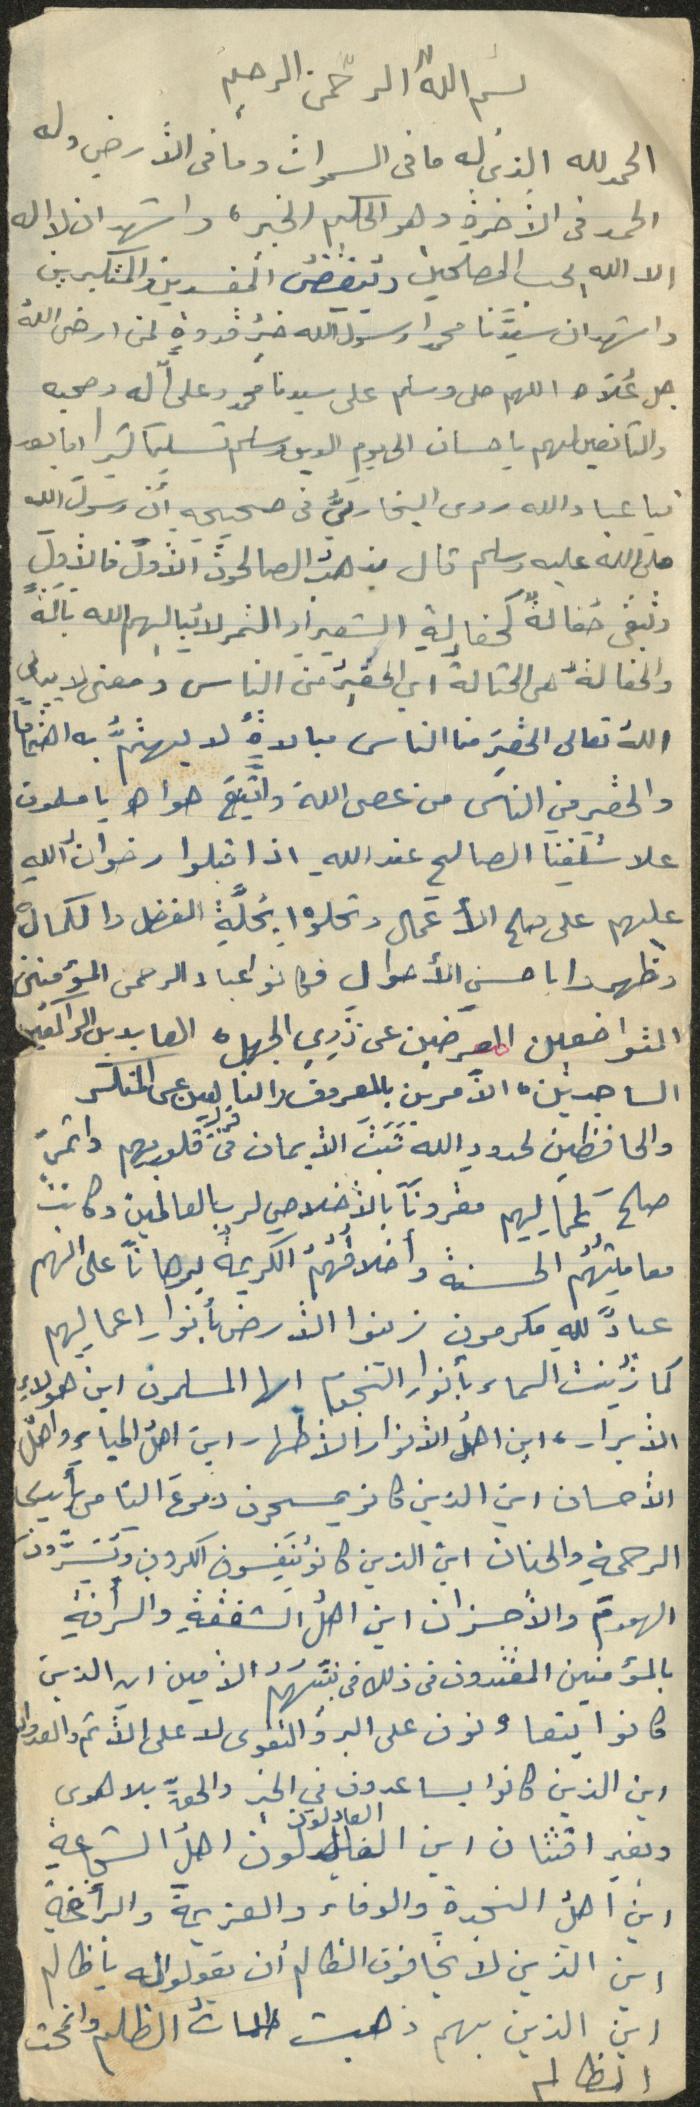 بسم الله الرحمن الرحيم
الحمد لله الذي له ما في السموات وما في الأرض وله
الحمد في الأخرة وهو الحكيم الخبير، واشهد ان لا اله
الا الله يحب المصلحين ويبغض المفسدين والمتكبرين
واشهد ان سيدنا محمدا رسول الله خير قدوة لمن ارضى الله
جل علاه اللهم صل وسلم على سيدنا محمد وعلى آله وصحبه
والتابعين لهم باحسان الى يوم الدين وسلم تسليما كثيرا اما بعد
فيا عباد الله روى البخاري في صحيحه أن رسول الله
صلى الله عليه وسلم قال يذهب الصالحون الأول فالأول
وتبقى حفالة كحفالة الشعير أو التمر لا يباليهم الله بالة
والحفالة هى الحثالة اي الحقير من الناس ومعنى لا يبالي
الله تعالى الحقير من الناس مبالاة لا يهتم به اهتماما
والحقير من الناس من عصى الله واتبع هواه يا مسلمون
علا سلفنا الصالح عند الله اذا قبلوا رضوان الله
عليهم على صالح الأعمال وتحلوا بحلية الفضل والكمال
وظهروا باحسن الأحوال فكانوا عباد الرحمن المؤمنين
المتواضعين المعرضين عن ذوي الجهل، العابدين الراكعين
الساجدين، الآمرين بالمعروف والناهين عن المنكر
والحافظين لحدود الله ثبت الأيمان في قلوبهم وأثمر
صالح اعمالهم مقرونا بالأخلاص لرب العالمين وكانت
معاملتهم الحسنة وأخلاقهم الكريمة برهانا على انهم
عباد لله مكرمون زينوا الأرض بأنوار اعمالهم
كما زينت السماء بأنوار النجوم ايها المسلمون اين هولاء
الأبرار، اين اهل الأنوار الأطهار اين اهل الحياء واهل
الأحسان اين الذين كانو يمسحون دموع اليتامى بأيدي
الرحمة والحنان اين الذين كانو ينفسون الكروب ويسرون
الهموم والأحزان اين اهل الشفقة والرأفة
بالمؤمنين المقتدون في ذلك في نبيهم الأمين اين الذين
كانوا يتعاونون على البر والتقوى لا على الأثم والعدوان
اين الذين كانوا يساعدون في الخير والحق بلا هوى
وبغير افتتان اين العادلون اهل الشجاعة
اين أهل النجدة والوفاء والعزيمة
اين الذين لا يخافون الظالم أن يقولوا له يا ظالم
اين الذين بهم ذهبت ظلمات الظلم وانمحت
المظالم